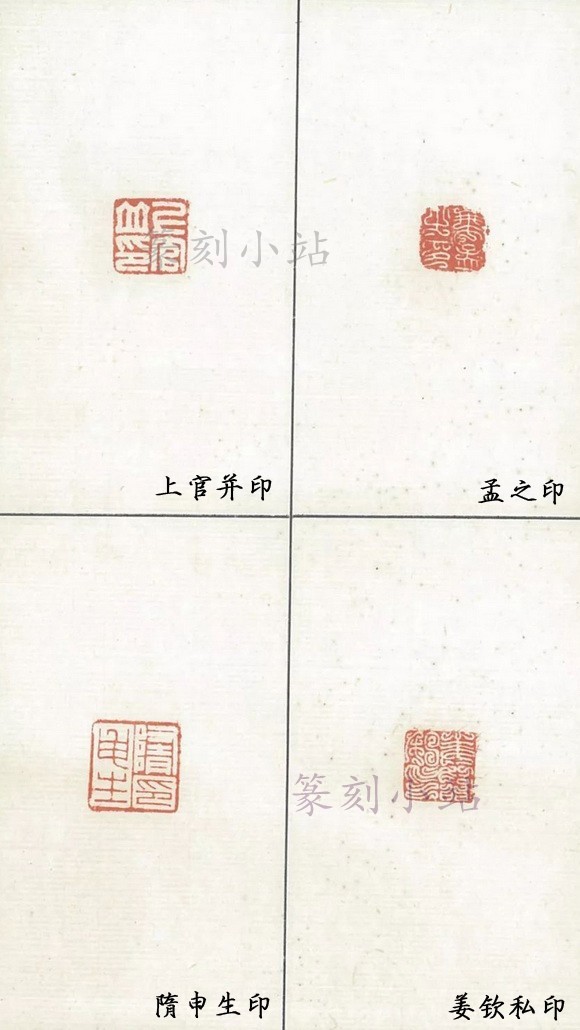 篆刻小站
上官并印
孟之印
隋申生印
篆刻小站
姜钦私印